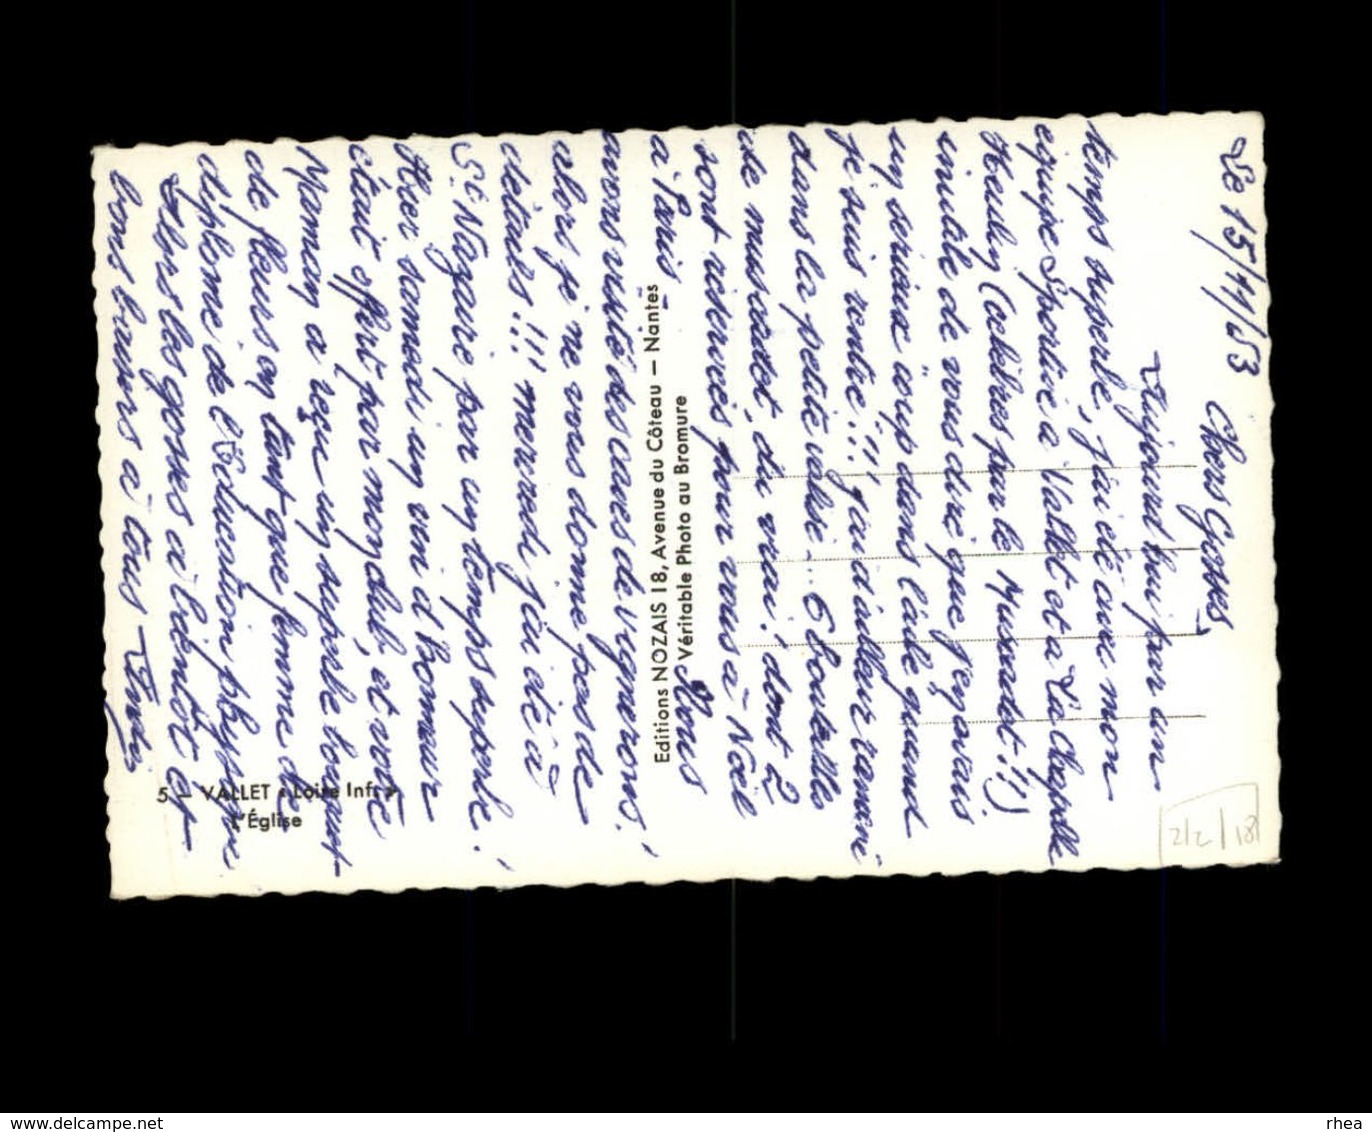 Le 15/11/53
Chers Gosses
Aujourd'hui par un
temps superbe, j'ai été avec mon
equipe Sportive à Vallet et a La chapelle
Heulin (celèbres par le Muscadet!!)
inutile de vous dire que j'en avais
un serieux "coup dans l'aile quand
je suis rentré!!! j'ai d'ailleur ramené
dans la petite valise... 6 bouteilles
de muscadet, du vrai! dont 2
sont reservées pour vous à Noël
à Paris Nous
avons visité des caves de vignerons!
alors je ne vous donne pas de
détails!!! mercredi j'ai été à
St Nazaire par un temps superbe!
Hier samedi un vin d'Honneur
était offert par mon club, et votre
Maman a reçu un superbe bouquet
de fleurs en tant que femme de
diplome de l'Education physique
Alors les gosses à bientôt et
bons baisers à tous
5 - VALLET « Loire Infre »
L'Église
Editions NOZAIS 18, Avenue du Côteau — Nantes
Véritable Photo au Bromure
2/2/18
www.delcampe.net
rhea